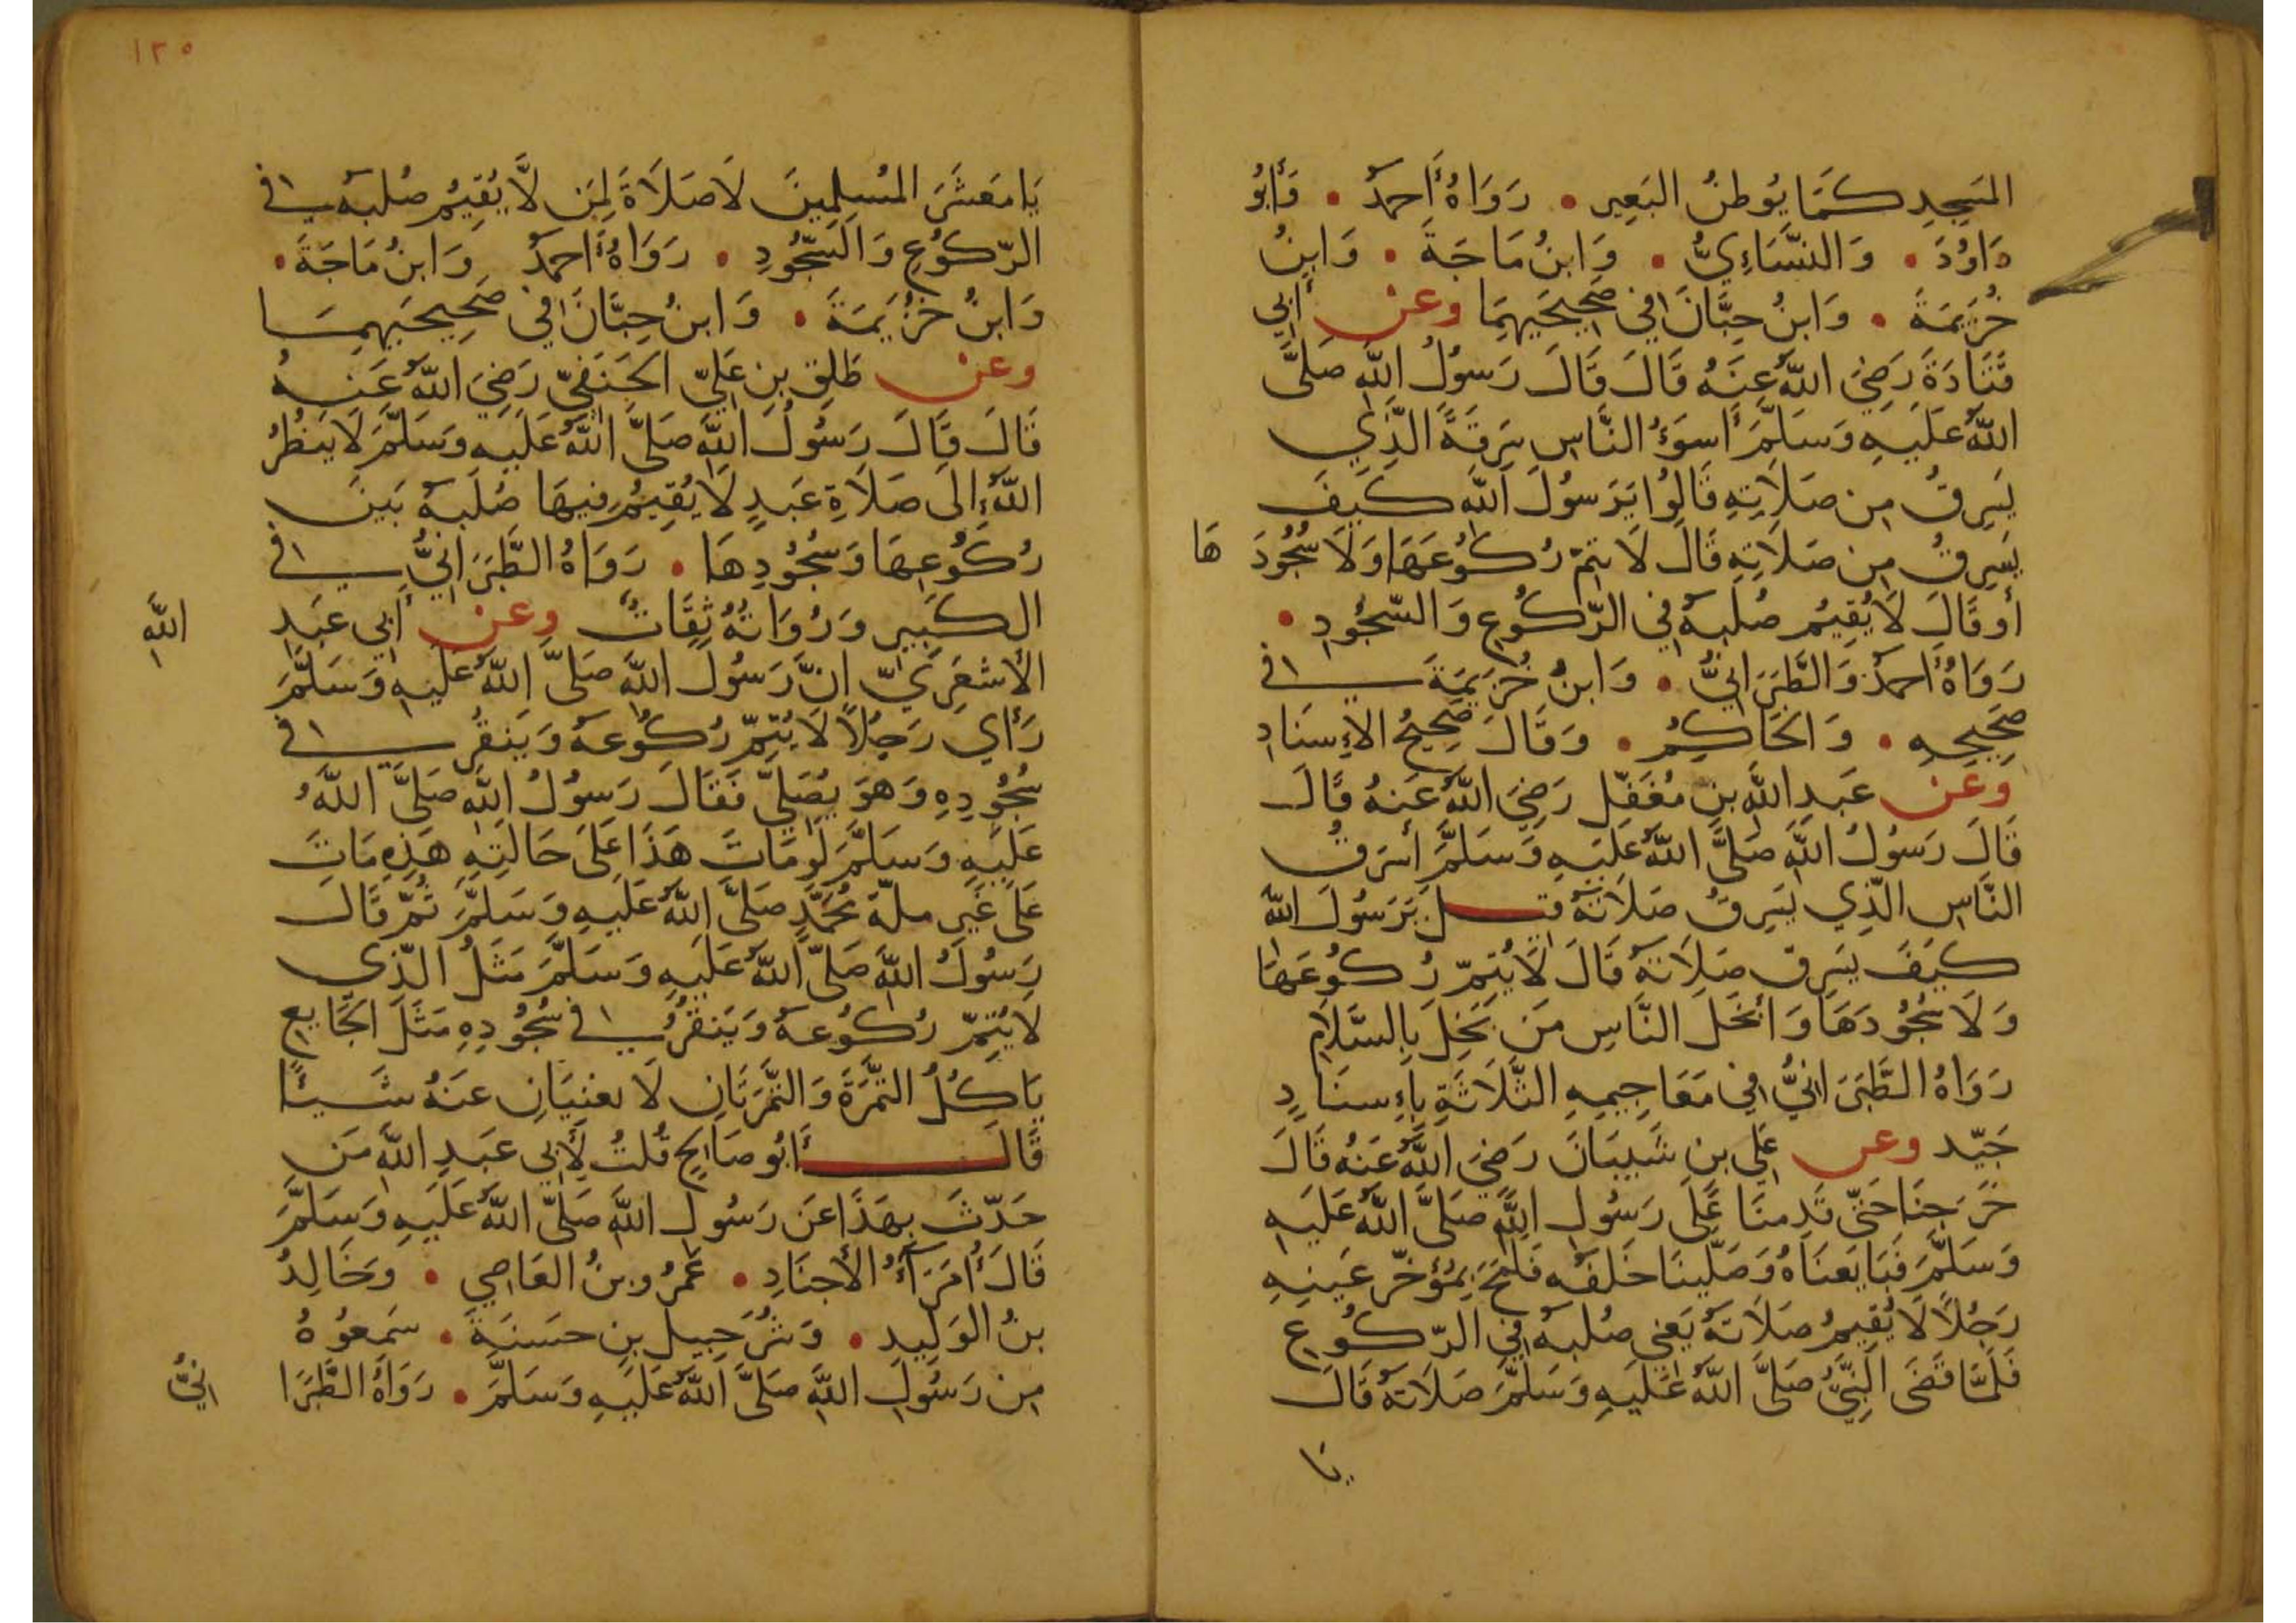 المَسجِدِ كَمَا يُوطِنُ البَعِير • رَوَاهُ أَحمَدُ • وَأَبُو
دَاوُدَ • وَالنَّسَاءِيُّ • وَابنُ مَاجَةَ • وَابنُ
خُزَيمَةَ • وَابنُ حِبَّانَ فِي صَحِيحَيهِمَا وعن أَبِي
قَتَادَةَ رَضِيَ اللَّهُ عَنهُ قَالَ قَالَ رَسُولُ اللَّهِ صَلَّى
اللَّهُ عَلَيهِ وَسَلَّمَ أَسوَءُ النَّاسِ سَرِقَةً الَّذِي
يَسرِقُ مِن صَلَاتِهِ قَالُوا يَرَسُولَ اللَّهِ كَيفَ
يَسرِقُ مِن صَلَاتِهِ قَالَ لَا يتمّ رُكُوعَهَا وَلَا سُجُودَهَا
أَو قَالَ لَا يُقِيمُ صُلبَهُ فِي الرُّكُوعِ وَالسُّجُودِ •
رَوَاهُ أَحمَدُ وَالطَّبَرَانِيُّ • وَابنُ خُزَيمَةَ فِي
صَحِيحِهِ • وَالحَاكِمُ • وَقَالَ صَحِيحُ الإِسنَادِ
وعن عَبدِ اللَّهِ بنِ مُغَفَّل رَضِيَ اللَّهُ عَنهُ قَالَ
قَالَ رَسُولُ اللَّهِ صَلَّى اللَّهُ عَلَيهِ وَسَلَّمَ أَسرَقُ
النَّاسِ الَّذِي يَسرِقُ صَلَاتَهُ قيل يَرَسُولَ اللَّهِ
كَيفَ يَسرِق صَلَاتَهُ قَالَ لَا يُتِمّ رُكُوعَهَا
وَلَا سُجُودَهَا وَأَبخَلُ النَّاسِ مَن بَخِلَ بِالسَّلَامِ
رَوَاهُ الطَّبَرَانِيُّ فِي مَعَاجِيمِهِ الثَّلَاثَةِ بِإِسنَادٍ
جَيِّد وعن عَلِي بنِ شَيبَانَ رَضِيَ اللَّهُ عَنهُ قَالَ
خَرَجنَا حَتّى قَدِمنَا عَلَى رَسُولِ اللَّهِ صَلَّى اللَّهُ عَلَيهِ
وَسَلَّمَ فَبَايَعنَاهُ وَصَلَّينَا خَلفَهُ فَلَمَحَ بِمُؤَخّرِ عَينِهِ
رَجُلًا لَا يُقِيمُ صَلَاتَهُ يَعنِي صُلبَهُ فِي الرُّكُوعِ
فَلَمَّا قَضَى النَّبِيُّ صَلَّى اللَّهُ عَلَيهِ وَسَلَّمَ صَلَاتَهُ قَالَ
يا
١٢٥
يَا مَعشَرَ المُسلِمِينَ لَا صَلَاةَ لِمَن لَّا يُقِيمُ صُلبَهُ فِي
الرُّكُوعِ وَالسُّجُودِ • رَوَاهُ أَحمَدُ وَابنُ مَاجَةَ •
وَابنُ خُزَيمَةَ • وَابنُ حِبَّانَ فِي صَحِيحَيهِمَا
وعن طَلقِ بنِ عَلِيّ الحَنَفِيّ رَضِيَ اللَّهُ عَنهُ
قَالَ قَالَ رَسُولُ اللَّهِ صَلَّى اللَّهُ عَلَيهِ وَسَلَّمَ لَا يَنظُرُ
اللَّهُ إِلَى صَلَاةِ عَبدٍ لَا يُقِيمُ فِيهَا صُلبَهُ بَينَ
رُكُوعِهَا وَسُجُودِهَا • رَوَاهُ الطَّبَرَانِيُّ فِي
الكَبِيرِ وَرُوَاتُهُ ثِقَاتٌ وعن أَبِي عَبدِ اللَّهِ
الأَشعَرِيّ انَّ رَسُولَ اللَّهِ صَلَّى اللَّهُ عَلَيهِ وَسَلَّمَ
رَأَي رَجُلًا لَا يُتِمّ رُكُوعَهُ وَيَنقُرُ فِي
سُجُودِهِ وَهوَ يُصَلِّي فَقَالَ رَسُولُ اللَّهِ صَلَّى اللَّهُ
عَلَيهِ وَسَلَّمَ لَو مَاتَ هَذَا عَلَى حَالَتِهِ هَذِهِ مَاتَ
عَلَى غَيرِ ملّة مُحَمَّدٍ صَلَّى اللَّهُ عَلَيهِ وَسَلَّمَ ثُمَّ قَالَ
رَسُولُ اللَّهِ صَلَّى اللَّهُ عَلَيهِ وَسَلَّمَ مَثَلُ الَّذِي
لَا يُتِمّ رُكُوعَهُ وَيَنقُرُ فِي سُجُودِهِ مَثَلَ الجَايِعِ
يَاكُلُ التَّمرَةَ وَالتَّمرَتَانِ لَا يغنِيَانِ عَنهُ شَيئًا
قَالَ أَبُو صَالِح قُلتُ لِأَبِي عَبدِ اللَّهِ مَن
حَدّثَ بِهَذَا عَن رَسُولِ اللَّهِ صَلَّى اللَّهُ عَلَيهِ وَسَلَّمَ
قَالَ أُمَرَآءُ الأَجنَادِ • عَمرُو بنُ العَاصِي • وَخَالِدُ
بنُ الوَلِيدِ • وَشُرَحبِيلِ بنِ حسَنَةَ • سَمِعُوهُ
مِن رَسُولِ اللَّهِ صَلَّى اللَّهُ عَلَيهِ وَسَلَّمَ • رَوَاهُ الطَّبَرَانِيُّ